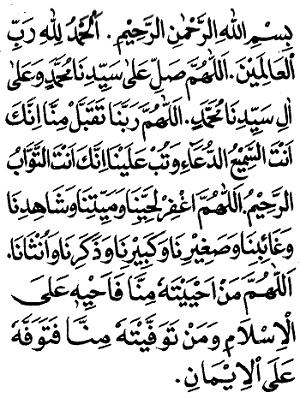 بِسْمِ اللهِ الرَّحْمٰنِ الرَّحِيْمِ. اَلْحَمْدُ لِلّٰهِ رَبِّ
الْعَالَمِيْنَ. اَللّٰهُمَّ صَلِّ عَلٰى سَيِّدِنَا مُحَمَّدٍ وَعَلٰى
اٰلِ سَيِّدِنَا مُحَمَّدٍ. اَللّٰهُمَّ رَبَّنَا تَقَبَّلْ مِنَّا اِنَّكَ
اَنْتَ السَّمِيْعُ الدُّعَاءِ وَتُبْ عَلَيْنَا اِنَّكَ اَنْتَ التَّوَّابُ
الرَّحِيْمُ. اَللّٰهُمَّ اغْفِرْ لِحَيِّنَا وَمَيِّتِنَا وَشَاهِدِنَا
وَغَائِبِنَا وَصَغِيْرِنَا وَكَبِيْرِنَا وَذَكَرِنَا وَاُنْثَانَا.
اَللّٰهُمَّ مَنْ اَحْيَيْتَهُ مِنَّا فَاَحْيِهِ عَلَى
الْاِسْلَامِ وَمَنْ تَوَفَّيْتَهُ مِنَّا فَتَوَفَّهُ
عَلَى الْاِيْمَانِ.